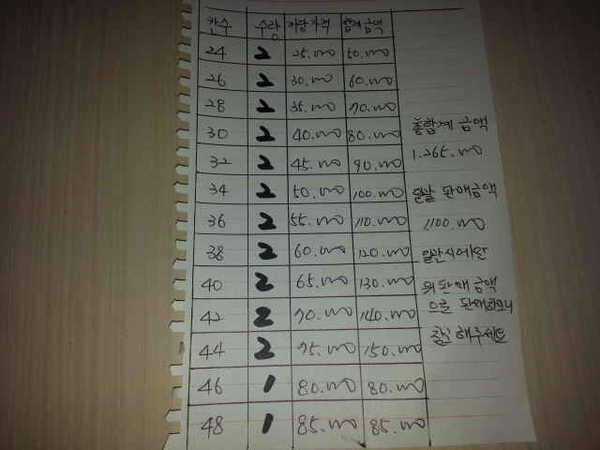 칸수 수량 개당가격 합계금액
24 2 25.000 50.000
26 2 30.000 60.000
28 2 35.000 70.000
30 2 40.000 80.000
32 2 45.000 90.000
34 2 50.000 100.000
36 2 55.000 110.000
38 2 60.000 120.000
40 2 65.000 130.000
42 2 70.000 140.000
44 2 75.000 150.000
46 1 80.000 80.000
48 1 85.000 85.000
총합계 금액
1.265.000
판매금액
1100.000
위 판매금액
으로 판매하오니
참고해주세요